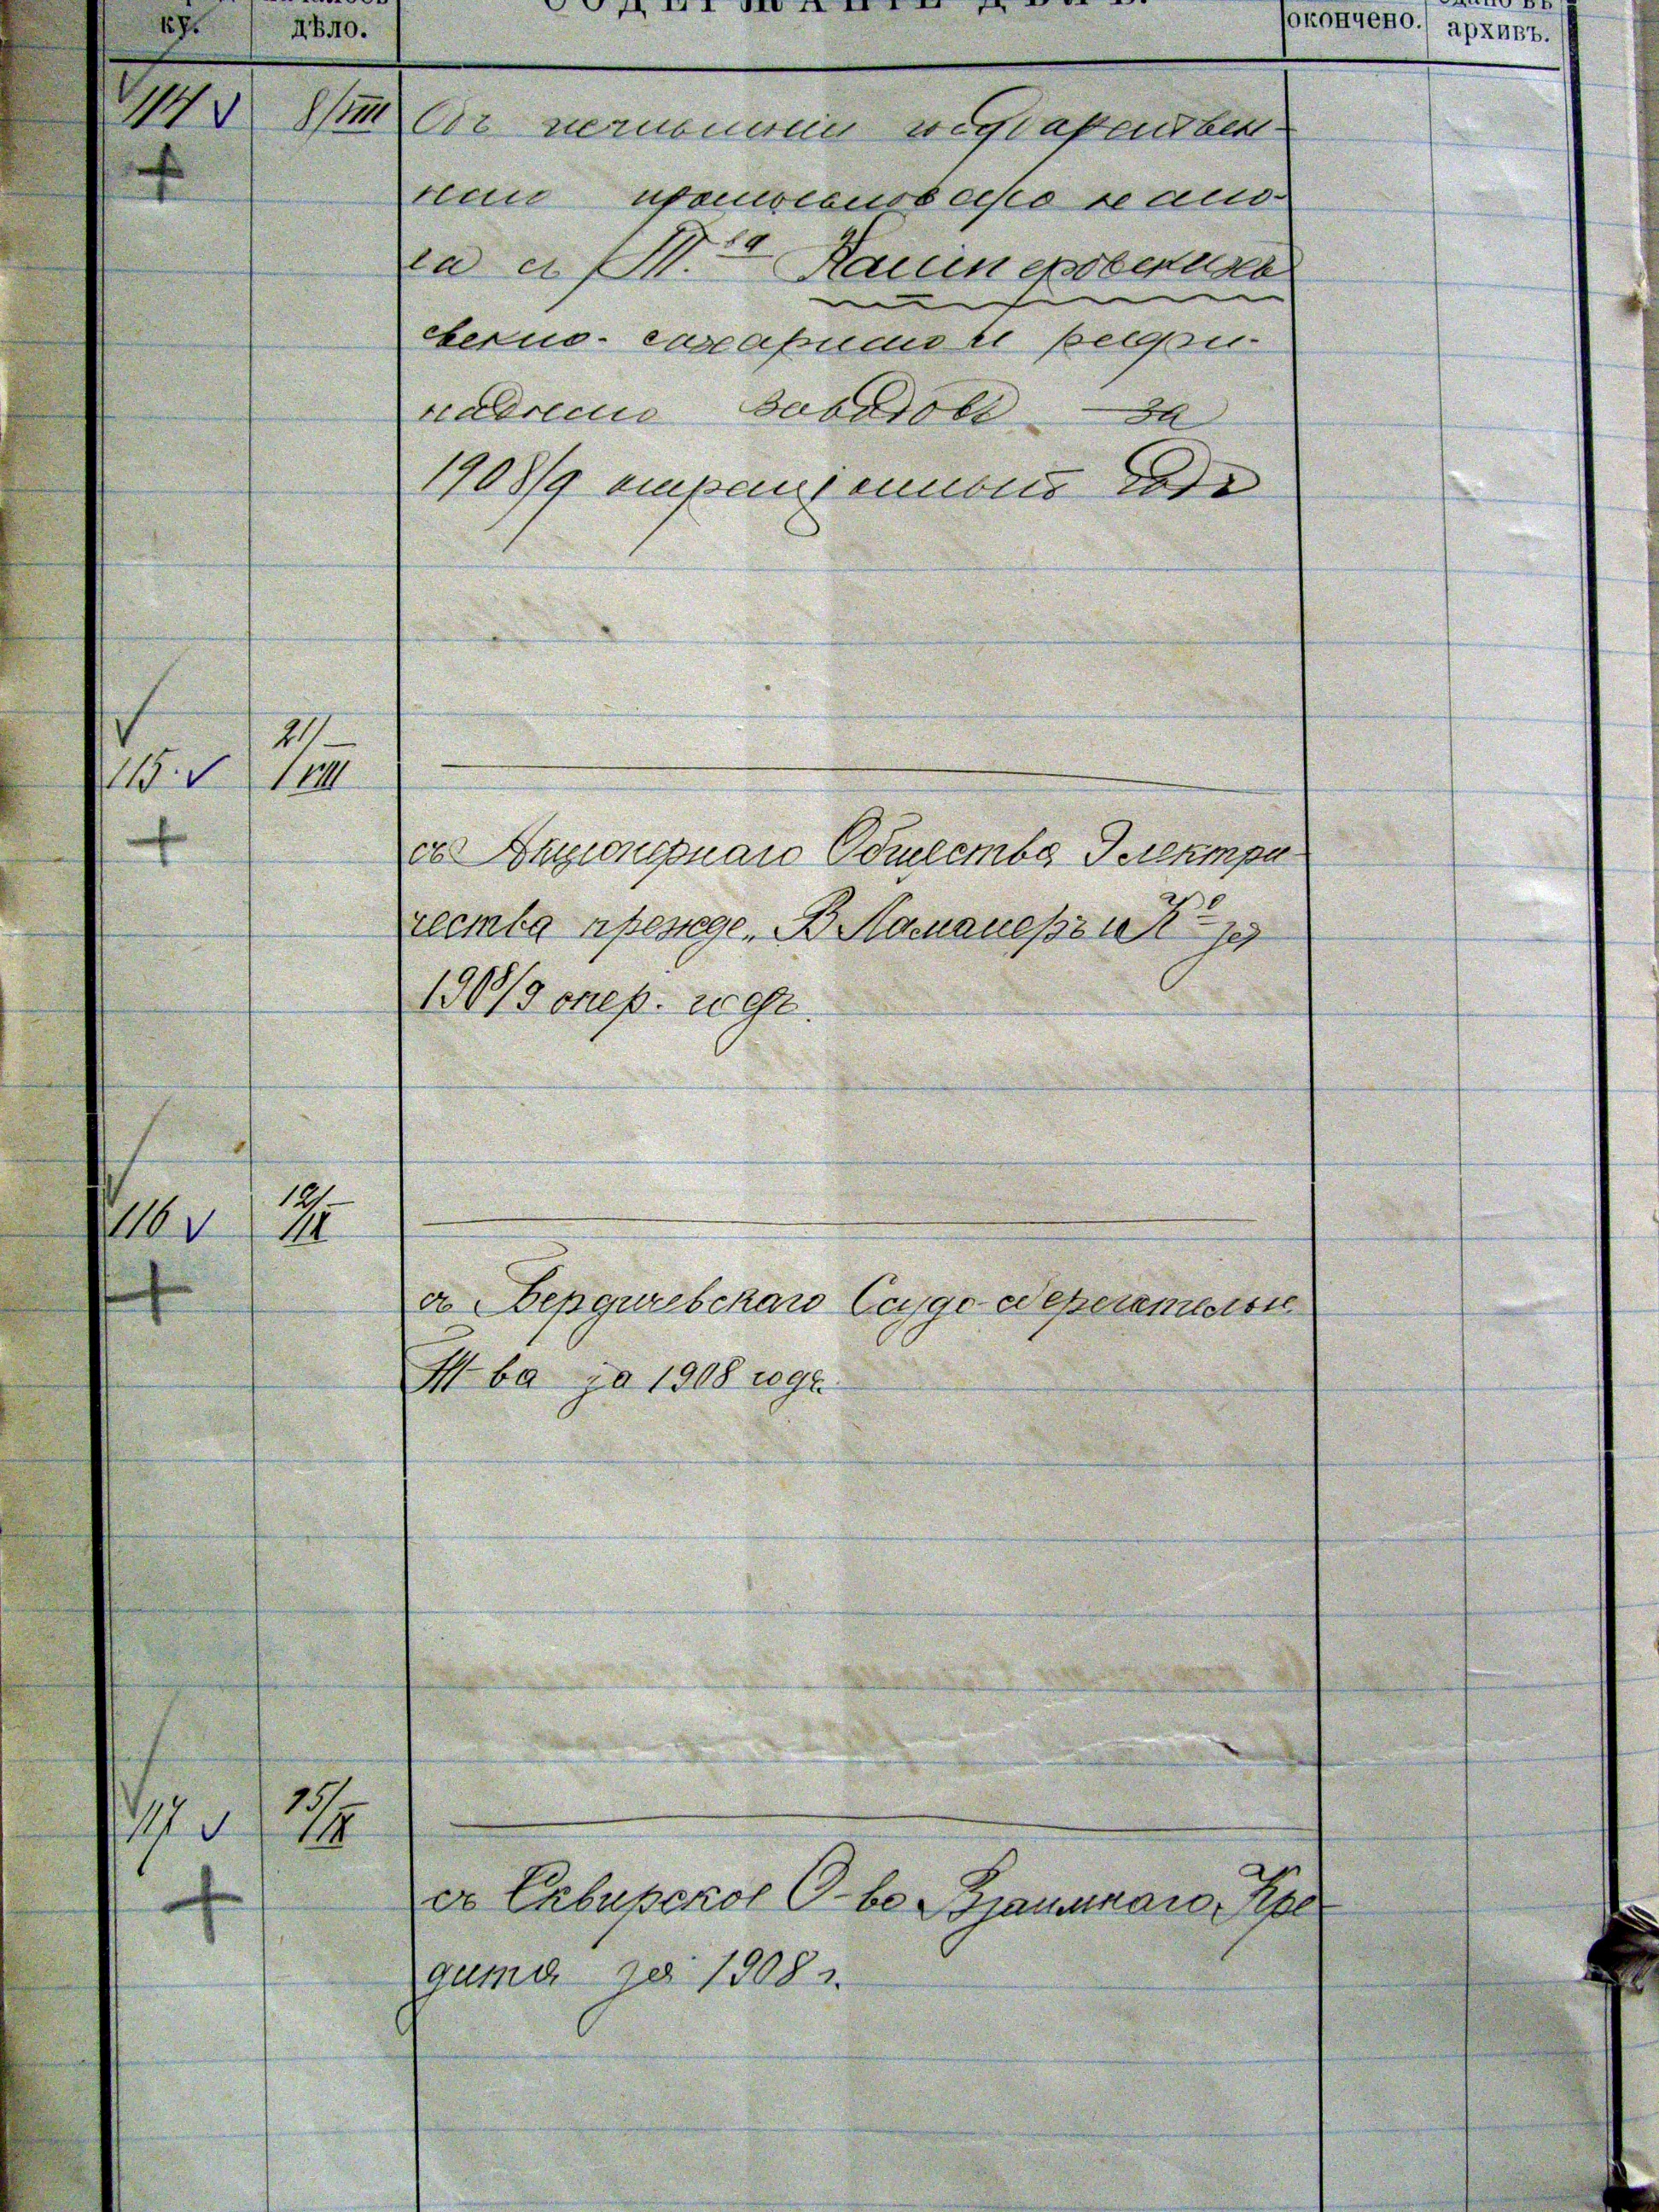 ку.
дѣло.
СОДЕРЖАНІЕ ДѢЛЪ.
окончено.
сдано въ
архивъ.
114 8/VIII Объ исчисленіи государствен-
наго промысловаго нало-
га съ Т.ва
свекло-сахарнаго и рафи-
наднаго заводовъ за
1908/9 операціонный годъ
115. 21/VIII
съ Акціонернаго Общества Электри-
чества прежде „В Ламайеръ и К⁰ за
1908/9 опер. годъ.
116 12/IX
съ Бердичевскаго Ссудо-сберегательн.
Т-ва за 1908 годъ.
117 15/IX
съ Сквирское О-во Взаимнаго Кре-
дита за 1908 г.